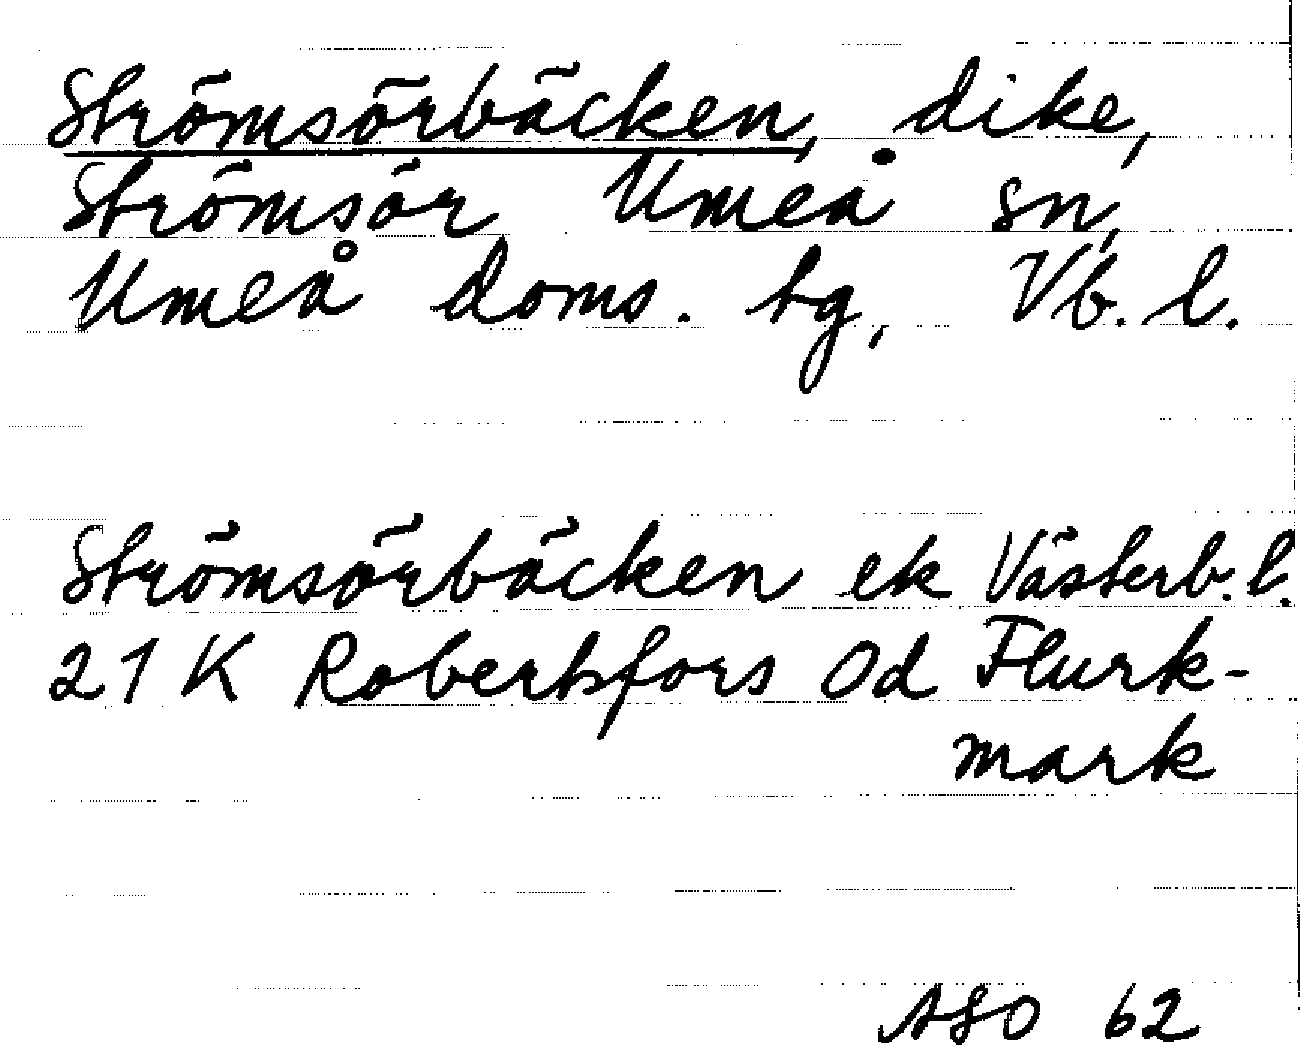 Strömsörbäcken, dike,
Strömsör Umeå sn,
Umeå doms. tg, Vb. l.
Strömsörbäcken ek Västerb. l.
21 K Robertsfors 0d Flurk-
mark
ASO 62